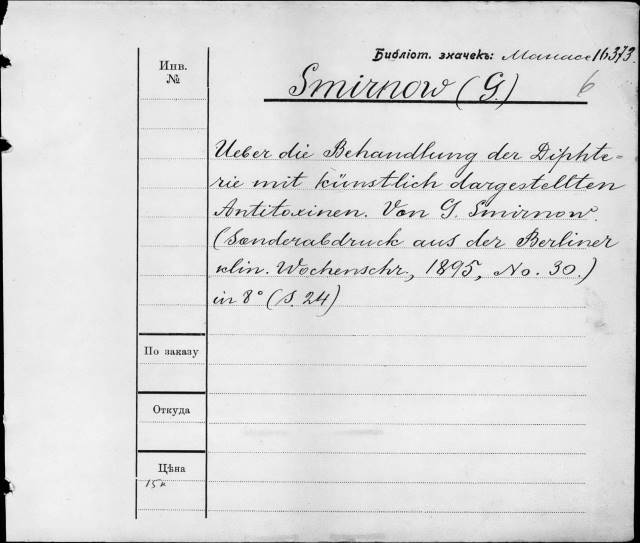 Библіот. значекъ: Манасс 16373.
Инв. №
Smirnow (G.)
6
Ueber die Behandlung der Diphte-
rie mit künstlich dargestellten
Antitoxinen. Von G. Smirnow.
(Sonderabdruck aus der Berliner
klin. Wochenschr., 1895, No. 30.)
in 8° (S. 24)
По заказу
Откуда
Цѣна
15к